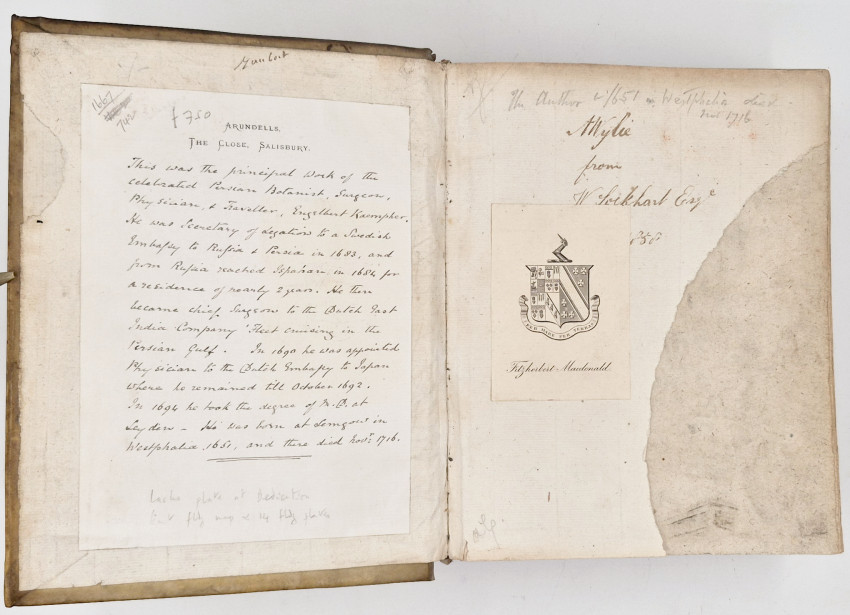 1667
£750
ARUNDELLS,
THE CLOSE, SALISBURY.
This was the principal work of the
celebrated Persian Botanist, Surgeon,
Physician, & Traveller, Engelbert Kaempher.
He was Secretary of Legation to a Swedish
Embassy to Russia & Persia in 1683, and
from Russia reached Ispahan in 1684 for
a residence of nearly 2 years. He then
became chief Surgeon to the Dutch East
India Company Fleet cruising in the
Persian Gulf. In 1690 he was appointed
Physician to the Dutch Embassy to Japan
where he remained till October 1692.
In 1694 he took the degree of M.D. at
Leyden – He was born at Lemgow in
Westphalia, 1651, and there died Novr. 1716.
Lacks plate at Dedication
fldg map & 14 fldg plates
The Author 1651 in Westphalia died
1716
AWylie
from
W. Lockhart Esqe
PER MARE PER TERRAS
Fitzherbert-Macdonald